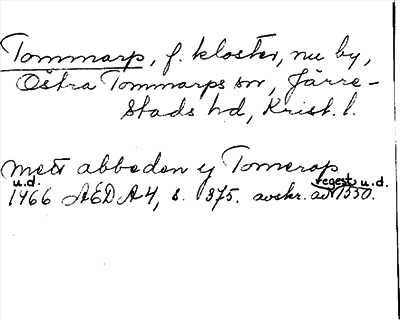 Tommarp, f. kloster, nu by,
Östra Tommarps sn, Järre-
stads hd, Krist. l.
mett abbeden y Tomerop
u.d. regest u.d.
1466 ÆDA 4, s. 375. avskr. av 1550.